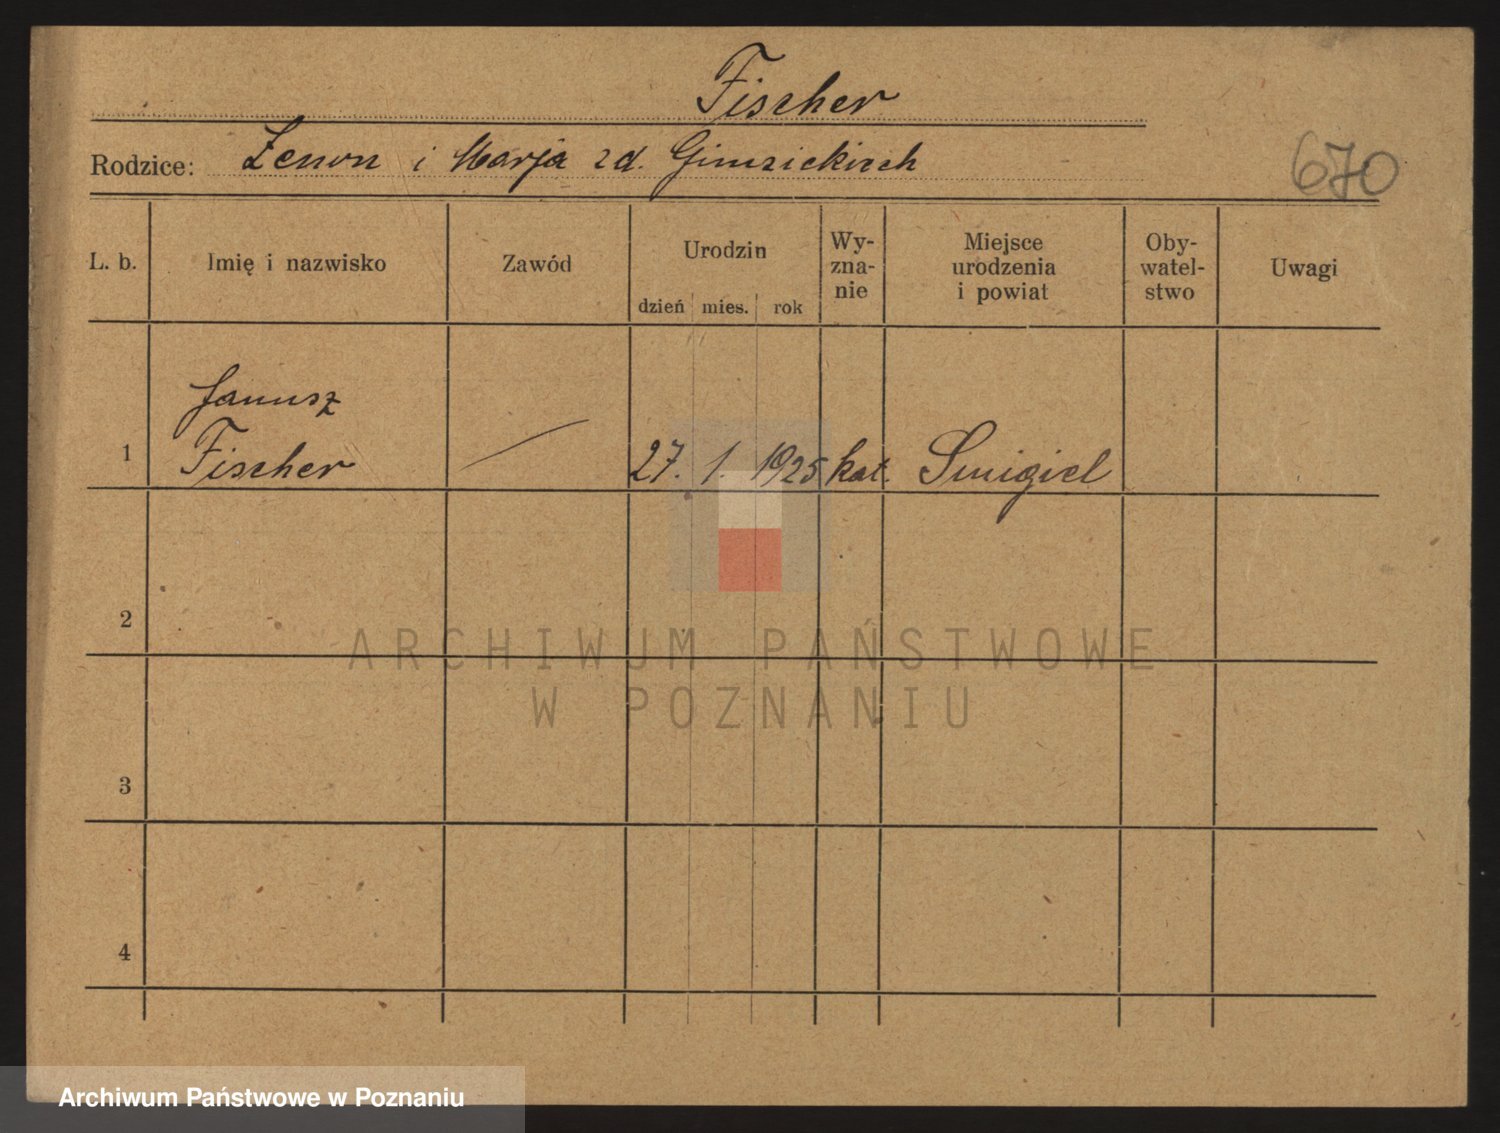 Fischer
Rodzice: Zenon i Marja zd.
670
L. b. Imię i nazwisko Zawód Urodzin Wy-zna-nie Miejsce urodzenia i powiat Oby-watel-stwo Uwagi
dzień mies. rok
Janusz
1 Fischer 27. 1. 1925 kat. Smigiel
2
ARCHIWUM PAŃSTWOWE
W POZNANIU
3
4
Archiwum Państwowe w Poznaniu